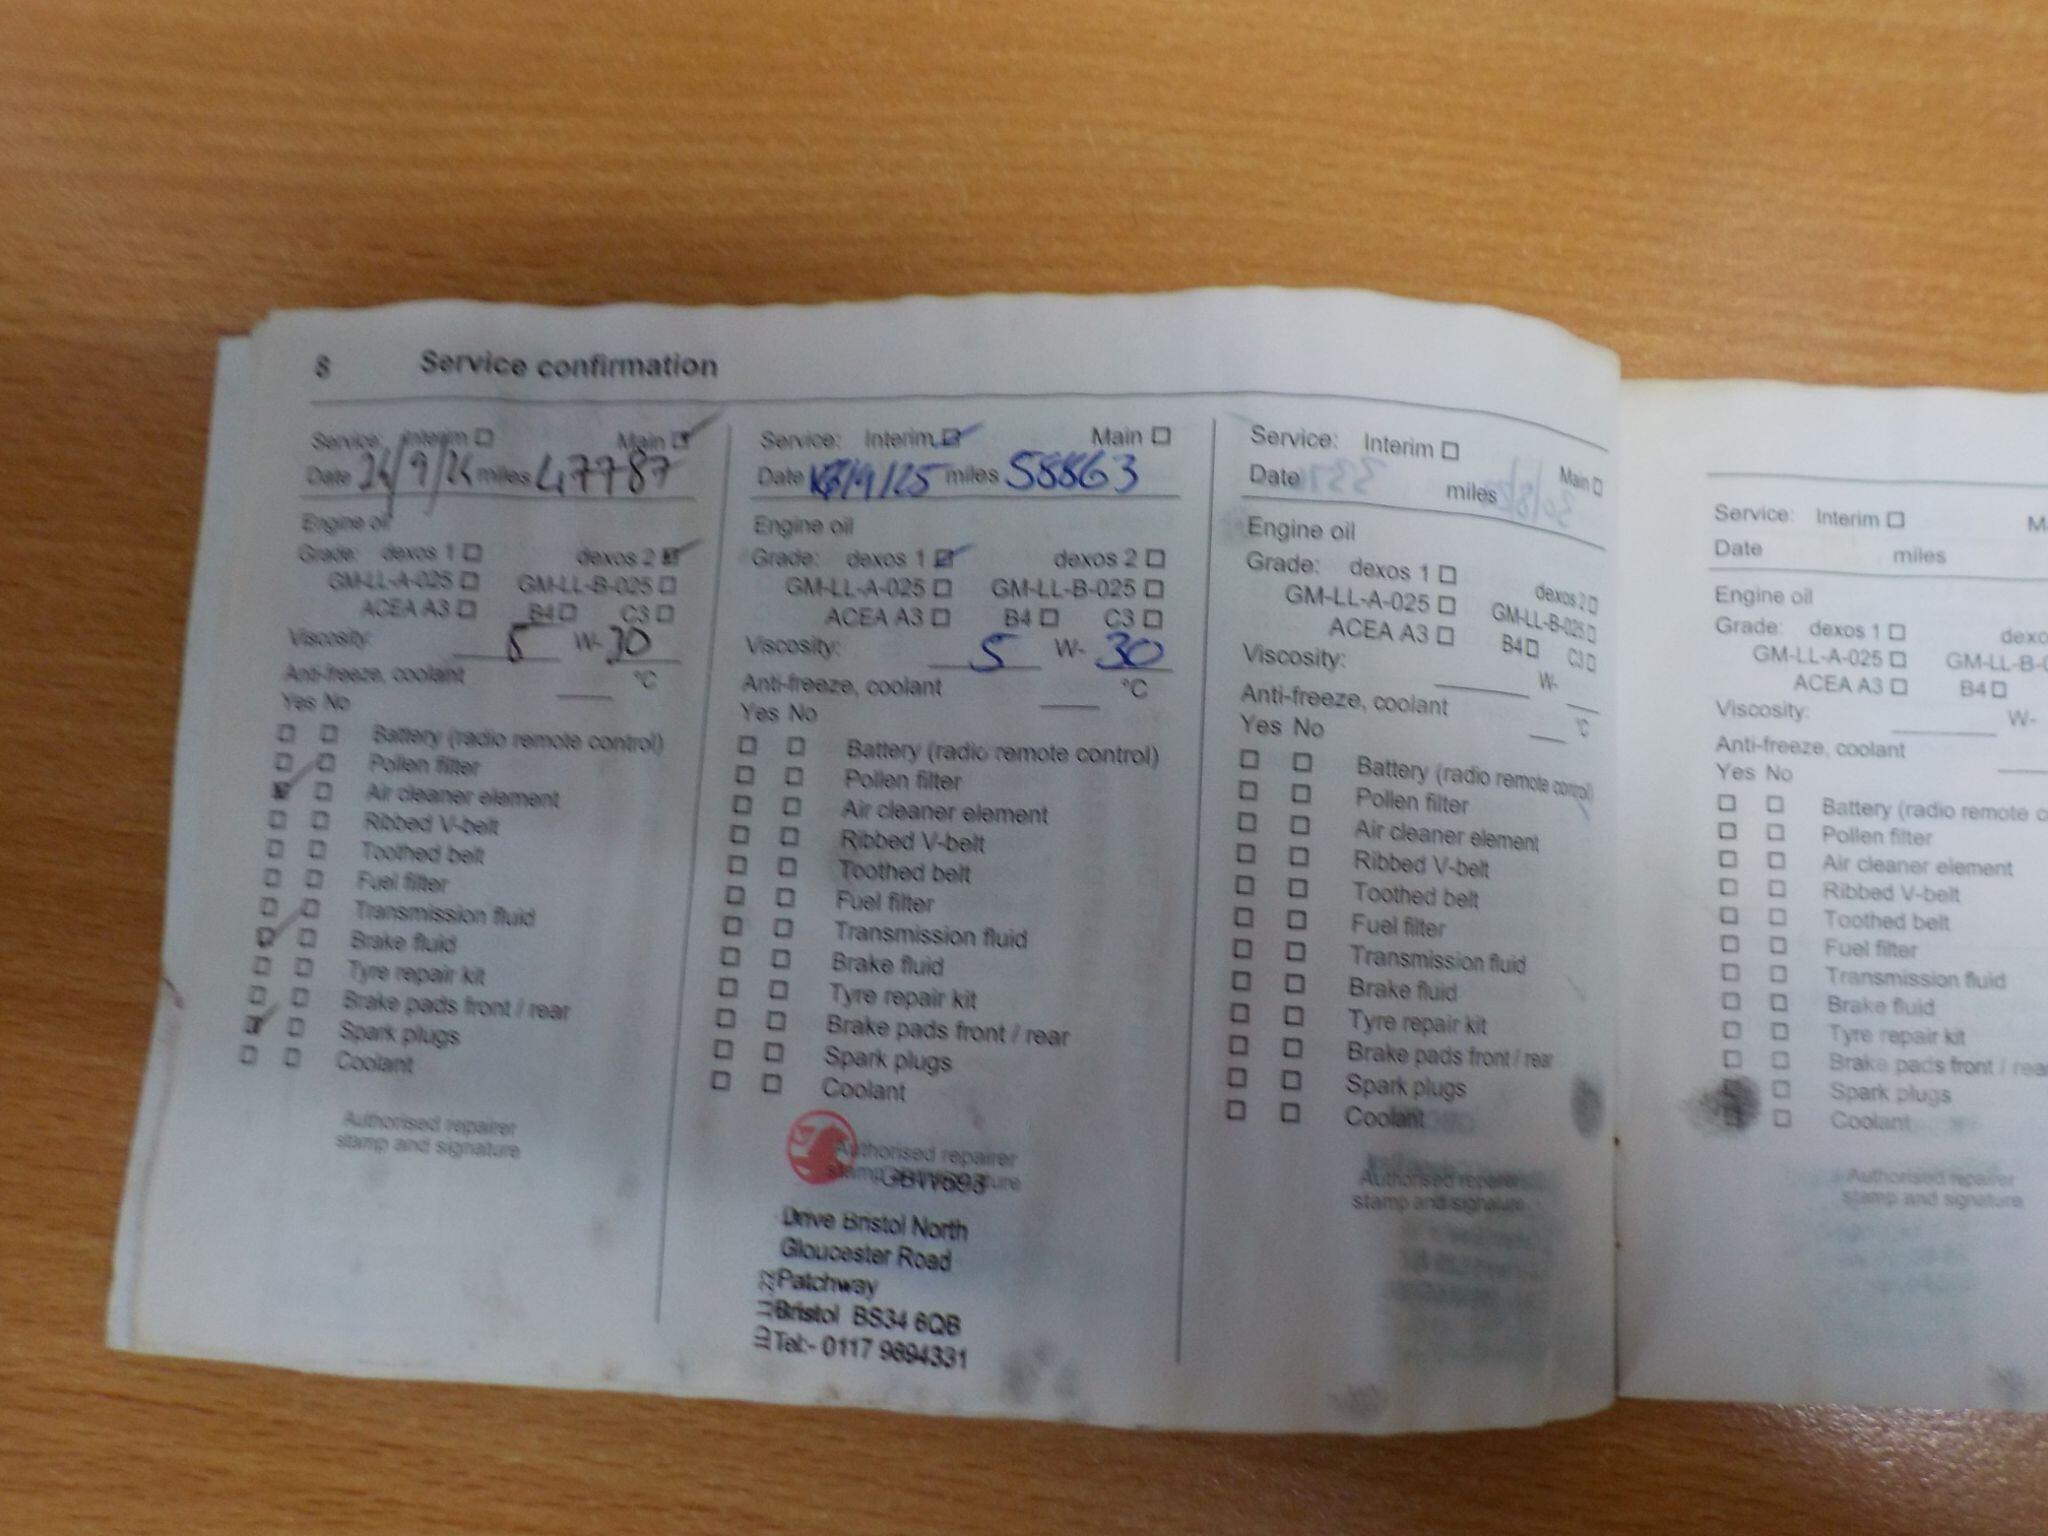 8 Service confirmation
Service: Interim Main
Date 24/9/24 miles 47787
Engine oil
Grade: dexos 1 dexos 2
GM-LL-A-025 GM-LL-B-025
ACEA A3 B4 C3
Viscosity: 5 W- 30
Anti-freeze, coolant °C
Yes No
Battery (radio remote control)
Pollen filter
Air cleaner element
Ribbed V-belt
Toothed belt
Fuel filter
Transmission fluid
Brake fluid
Tyre repair kit
Brake pads front / rear
Spark plugs
Coolant
Authorised repairer
stamp and signature
Service: Interim Main
Date miles 58863
Engine oil
Grade: dexos 1 dexos 2
GM-LL-A-025 GM-LL-B-025
ACEA A3 B4 C3
Viscosity: 5 W- 30
Anti-freeze, coolant °C
Yes No
Battery (radio remote control)
Pollen filter
Air cleaner element
Ribbed V-belt
Toothed belt
Fuel filter
Transmission fluid
Brake fluid
Tyre repair kit
Brake pads front / rear
Spark plugs
Coolant
Authorised repairer
stamp and signature
GBW693
Drive Bristol North
Gloucester Road
Patchway
Bristol BS34 6QB
Tel:- 0117 9694331
Service: Interim Main
Date miles
Engine oil
Grade: dexos 1 dexos 2
GM-LL-A-025 GM-LL-B-025
ACEA A3 B4 C3
Viscosity: W-
Anti-freeze, coolant °C
Yes No
Battery (radio remote control)
Pollen filter
Air cleaner element
Ribbed V-belt
Toothed belt
Fuel filter
Transmission fluid
Brake fluid
Tyre repair kit
Brake pads front / rear
Spark plugs
Coolant
Authorised repairer
stamp and signature
Service: Interim M
Date miles
Engine oil
Grade: dexos 1 dexo
GM-LL-A-025 GM-LL-B-0
ACEA A3 B4
Viscosity: W-
Anti-freeze, coolant
Yes No
Battery (radio remote c
Pollen filter
Air cleaner element
Ribbed V-belt
Toothed belt
Fuel filter
Transmission fluid
Brake fluid
Tyre repair kit
Brake pads front / rear
Spark plugs
Coolant
Authorised repairer
stamp and signature